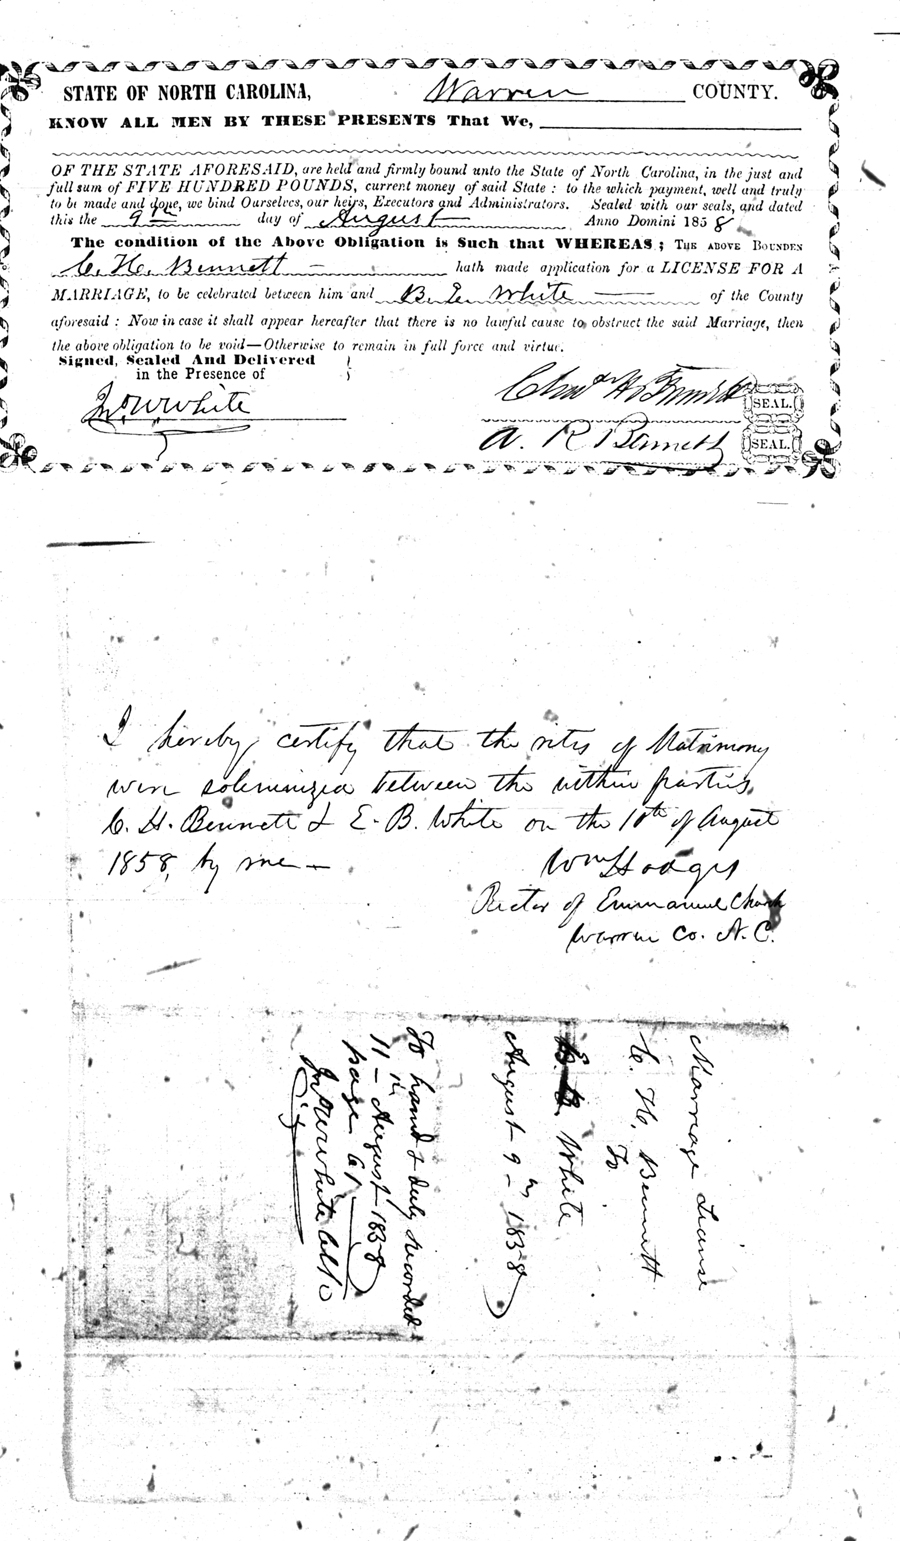 STATE OF NORTH CAROLINA, Warren COUNTY.
KNOW ALL MEN BY THESE PRESENTS That We,
OF THE STATE AFORESAID, are held and firmly bound unto the State of North Carolina, in the just and
full sum of FIVE HUNDRED POUNDS, current money of said State : to the which payment, well and truly
to be made and done, we bind Ourselves, our heirs, Executors and Administrators. Sealed with our seals, and dated
this the 9th day of August Anno Domini 1858
The condition of the Above Obligation is Such that WHEREAS ; THE ABOVE BOUNDEN
C. H. Bennett — hath made application for a LICENSE FOR A
MARRIAGE, to be celebrated between him and B. E. White — of the County
aforesaid : Now in case it shall appear hereafter that there is no lawful cause to obstruct the said Marriage, then
the above obligation to be void—Otherwise to remain in full force and virtue.
Signed, Sealed And Delivered
in the Presence of
Jno W White
Chas H Bennett SEAL.
A. R. Bennett SEAL.
I hereby certify that the rites of Matrimony
were solemnized between the within parties,
C. H. Bennett & E. B. White on the 10th of August
1858, by me —
Wm Hodges
Rector of Emmanuel Church
Warren Co. N. C.
Marriage License
C. H. Bennett
To
White
August 9th 1858
To hand & duly recorded
11th August 1858
page 61
Jno W White Clk